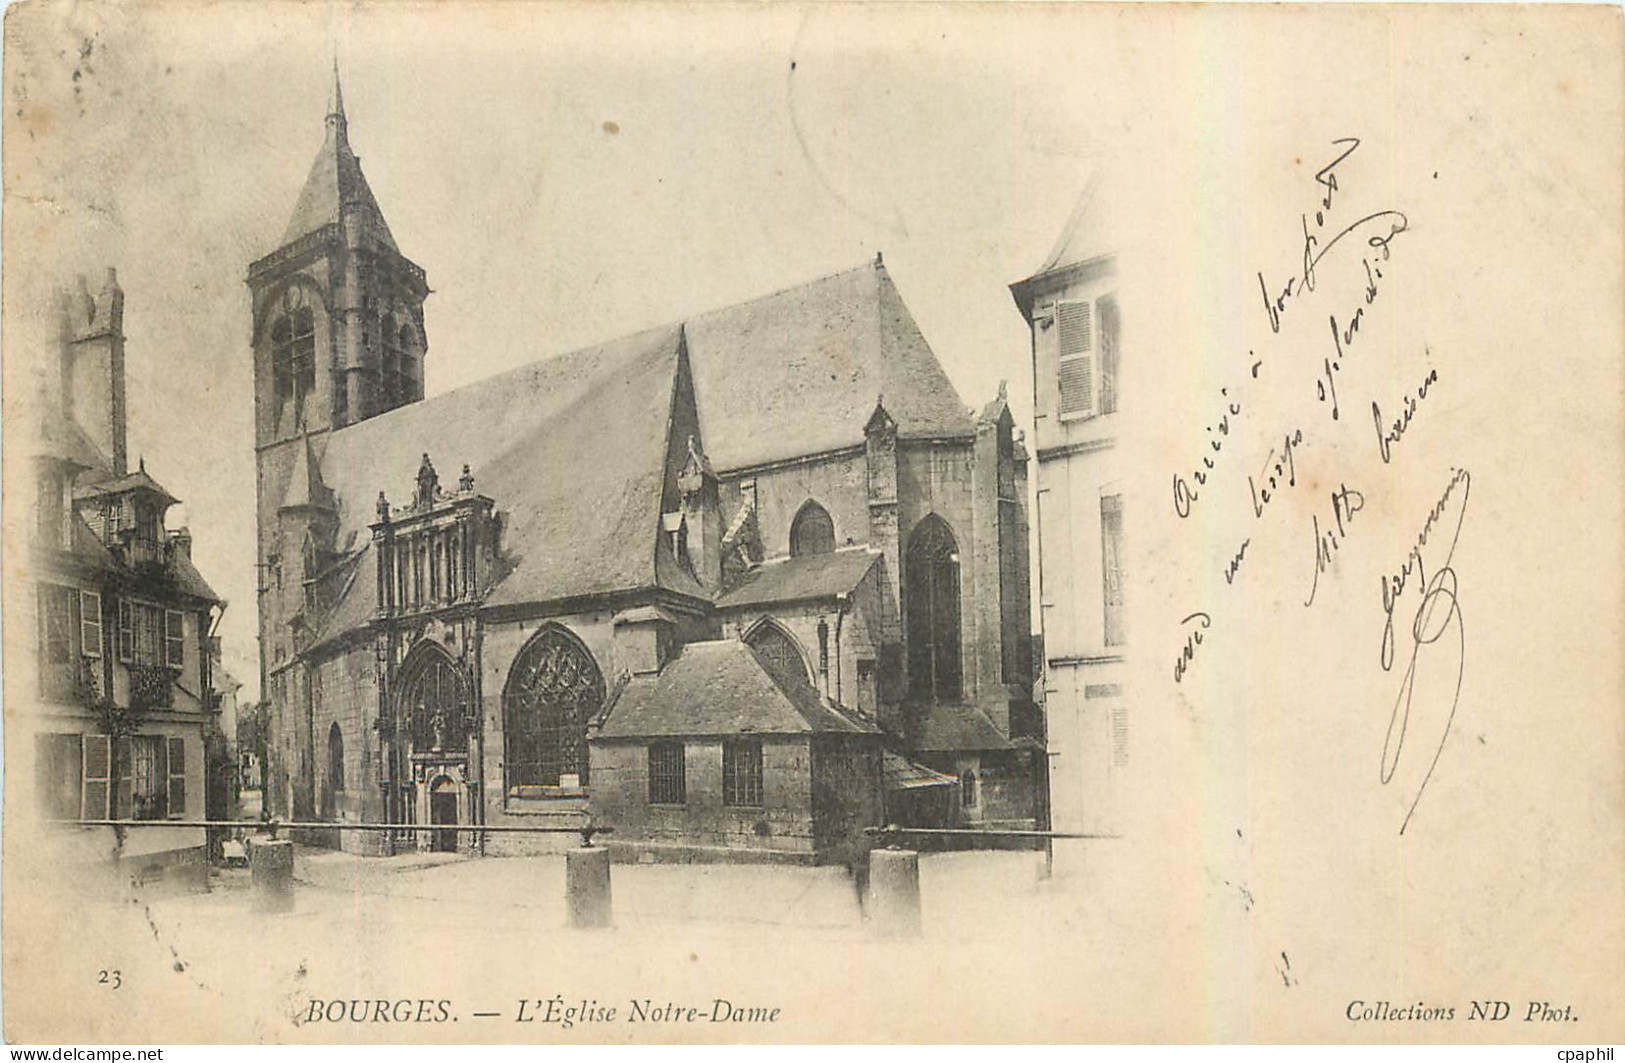 Arrivé à bon port
avec un temps splendide.
Mille baisers
23
BOURGES. — L'Église Notre-Dame
Collections ND Phot.
www.delcampe.net
cpaphil